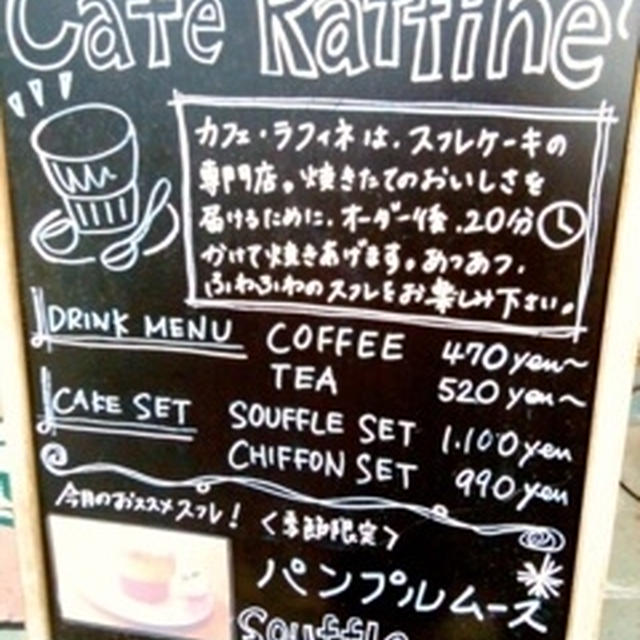 Cafe Raffine
カフェ・ラフィネは、スフレケーキの
専門店。焼きたてのおいしさを
届けるために、オーダー後、20分
かけて焼きあげます。あつあつ、
ふわふわのスフレをお楽しみ下さい。
DRINK MENU COFFEE 470yen~
TEA 520yen~
CAKE SET SOUFFLE SET 1.100yen
CHIFFON SET 990yen
今月のおススメスフレ!〈季節限定〉
パンプルムース
Souffle